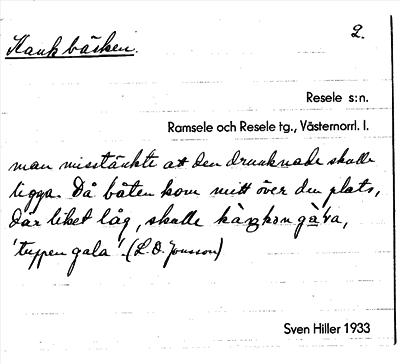 Kankbäcken.
2.
Resele s:n.
Ramsele och Resele tg., Västernorrl. l.
man misstänkte att den drunknade skulle
ligga. Då båten kom mitt över den plats,
där liket låg, skulle
'tuppen gala'. (L.O. Jonsson)
Sven Hiller 1933